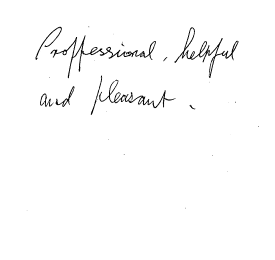 Proffessional, helpful
and pleasant.